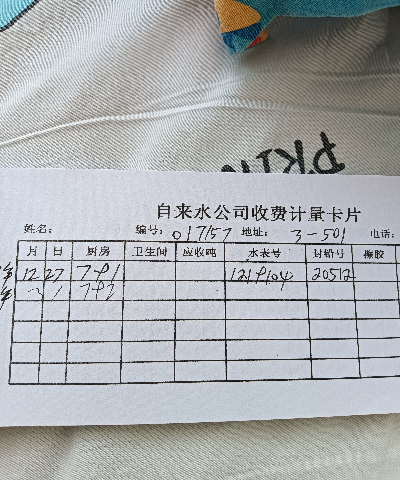 PKIN
自来水公司收费计量卡片
姓名: 编号: 017157 地址: 3-501 电话:
月 日 厨房 卫生间 应收吨 水表号 封铅号 橡胶
12 27 791 20512